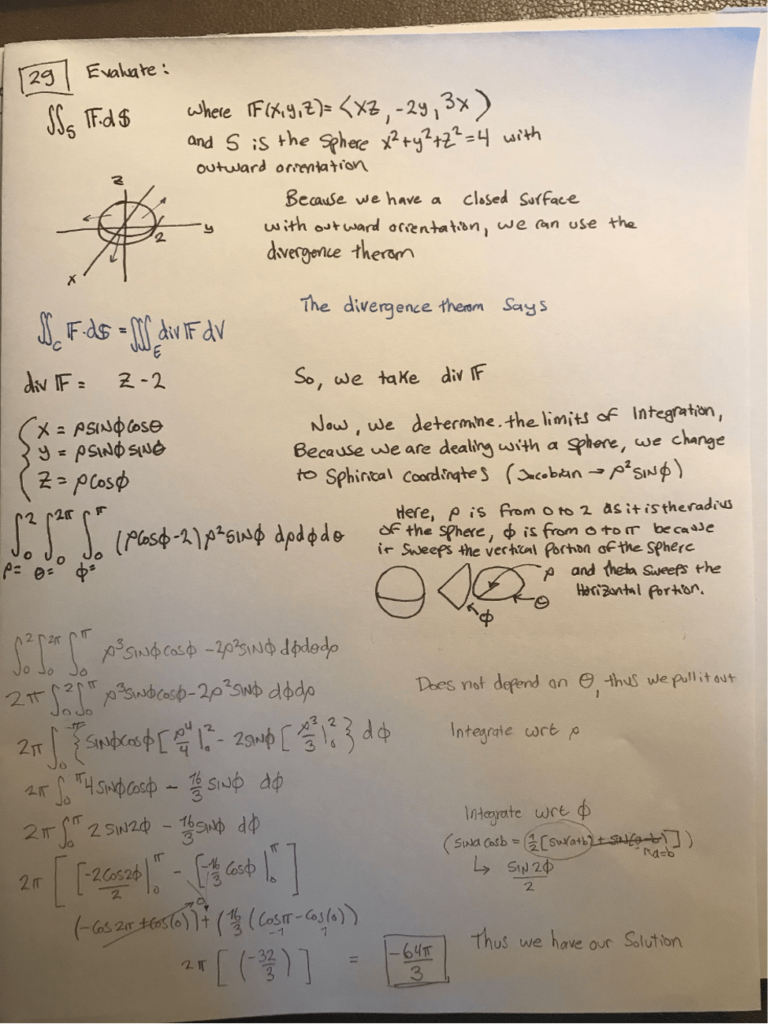 29 Evaluate:
∬_S F·dS where F(x,y,z)= ⟨xz, -2y, 3x⟩
and S is the sphere x²+y²+z²=4 with
outward orientation
z
y
2
x
Because we have a closed surface
with outward orientation, we can use the
divergence therom
The divergence therom says
∬_C F·dS = ∭_E div F dV
div F = z - 2
So, we take div F
{ x = ρ sinϕ cosθ
y = ρ sinϕ sinθ
z = ρ cosϕ
Now, we determine the limits of Integration,
Because we are dealing with a sphere, we change
to Sphirical coordinates (Jacobian → ρ² sinϕ)
∫_{ρ=0}^{2} ∫_{θ=0}^{2π} ∫_{ϕ=0}^{π} (ρcosϕ-2)ρ² sinϕ dρdϕdθ
Here, ρ is from 0 to 2 as it is the radius
of the sphere, ϕ is from 0 to π because
it sweeps the vertical portion of the sphere
and theta sweeps the
Horizontal portion.
ρ
θ
ϕ
∫_0^2 ∫_0^{2π} ∫_0^π ρ³ sinϕcosϕ - 2ρ² sinϕ dϕdθdρ
2π ∫_0^2 ∫_0^π ρ³ sinϕcosϕ - 2ρ² sinϕ dϕdρ
Does not depend on θ, thus we pull it out
2π ∫_0^π { sinϕcosϕ [ρ⁴/4 |_0^2 - 2sinϕ [ρ³/3 |_0^2 } dϕ
Integrate wrt ρ
2π ∫_0^π 4 sinϕcosϕ - 16/3 sinϕ dϕ
Integrate wrt ϕ
2π ∫_0^π 2 sin2ϕ - 16/3 sinϕ dϕ
(sina cosb = 1/2 [sin(a+b) + sin(a-b)])
a=b
↳ sin2ϕ/2
2π [ [-2cos2ϕ/2 |_0^π - [-16/3 cosϕ |_0^π ]
0
(-cos2π + cos(0)) + (16/3 (cosπ - cos(0))
-1 1
2π [ (-32/3) ] = -64π/3
Thus we have our Solution